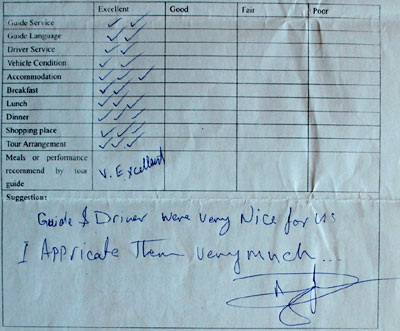 Excellent Good Fair Poor
Guide Service
Guide Language
Driver Service
Vehicle Condition
Accommodation
Breakfast
Lunch
Dinner
Shopping place
Tour Arrangement
Meals or performance
recommend by tour
guide
V. Excellent
Suggestion:
Guide & Driver were very Nice for us
I Appricate Them very much...